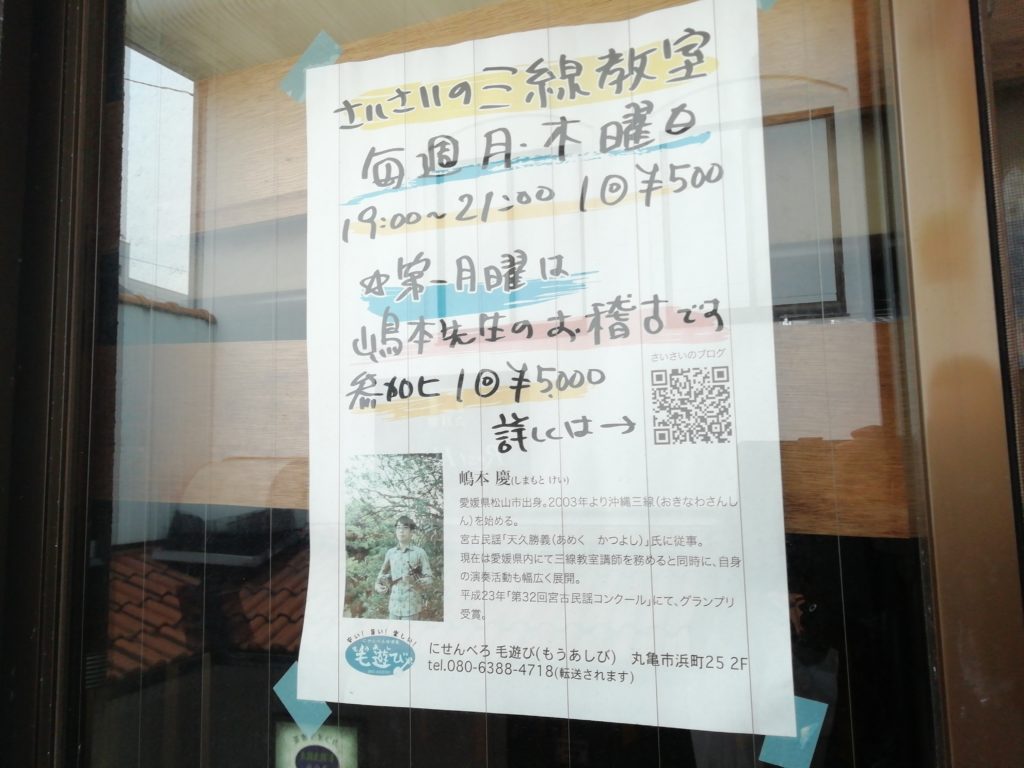 さいさいの三線教室
毎週月・木曜日
19:00〜21:00 1回¥500
第一月曜は
嶋本先生のお稽古です
参加ヒ 1回¥5000
さいさいのブログ
詳しくは→
嶋本 慶(しまもと けい)
愛媛県松山市出身。2003年より沖縄三線(おきなわさんし
ん)を始める。
宮古民謡「天久勝義(あめく　かつよし)」氏に従事。
現在は愛媛県内にて三線教室講師を務めると同時に、自身
の演奏活動も幅広く展開。
平成23年「第32回宮古民謡コンクール」にて、グランプリ
受賞。
安い!旨い!楽しい!
毛遊び
にせんべろ 毛遊び(もうあしび)　丸亀市浜町25 2F
tel.080-6388-4718(転送されます)